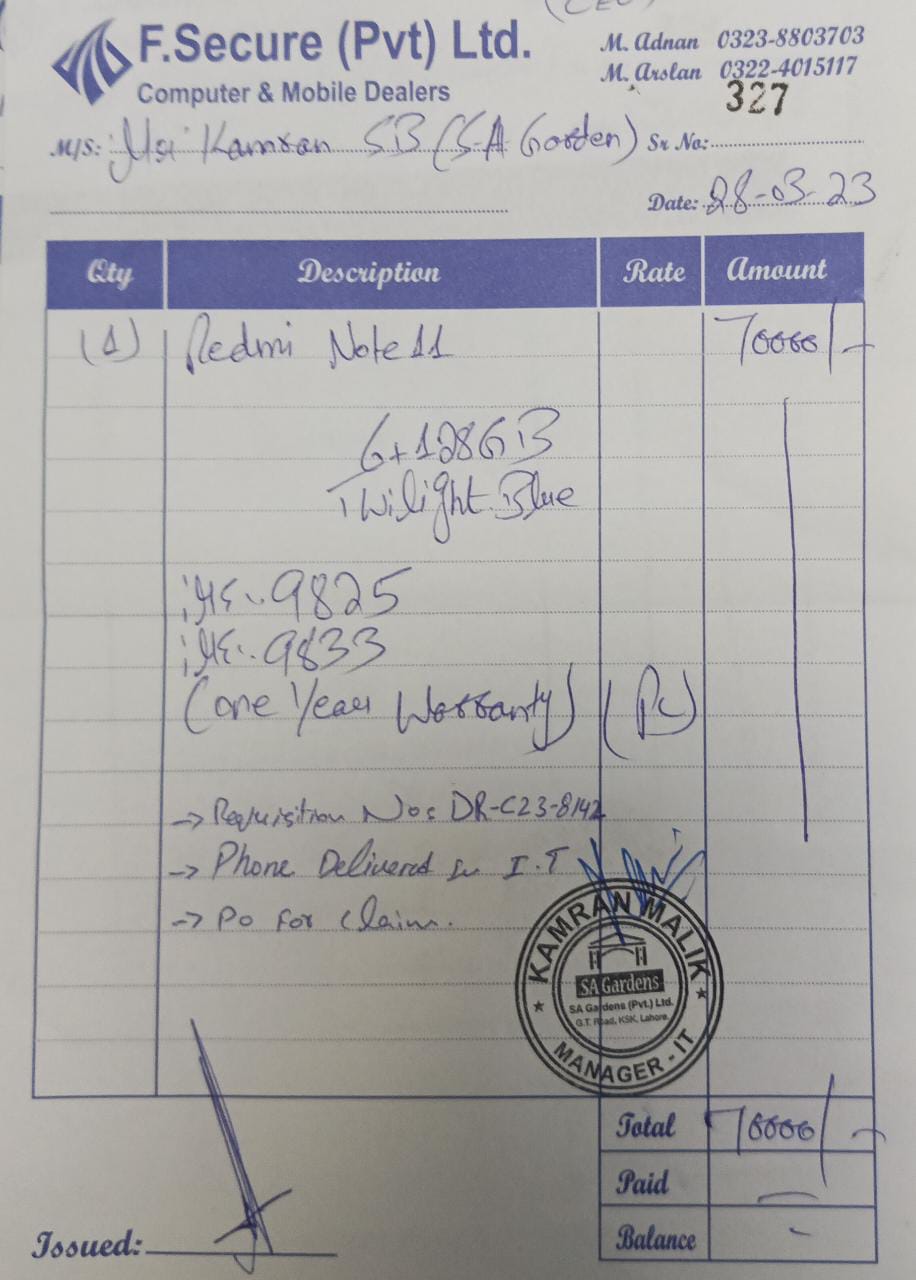 F.Secure (Pvt) Ltd.
Computer & Mobile Dealers
M. Adnan 0323-8803703
M. Arslan 0322-4015117
327
M/S: Kamran SB (S.A Gorden) Sr No:
Date: 28-03-23
Qty Description Rate Amount
(1) Redmi Note 11 70000/-
6+128GB
Twilight Blue
9825
9833
(one Year Warranty) (Pc)
-> Requisition No: DR-C23-8142
-> Phone Delivered In I.T
-> Po For Claim.
KAMRAN MALIK
SA Gardens
SA Gardens (Pvt.) Ltd.
G.T. Road, KSK, Lahore.
MANAGER - IT
Total 70000/-
Paid -
Balance -
Issued: